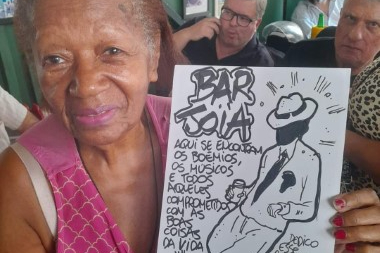 BAR
JOIA
AQUI SE ENCONTRAM
OS BOÊMIOS,
OS MÚSICOS
E TODOS
AQUELES
COMPROMETIDOS
COM AS
BOAS
COISAS
DA VIDA
DEDICO
ESSE